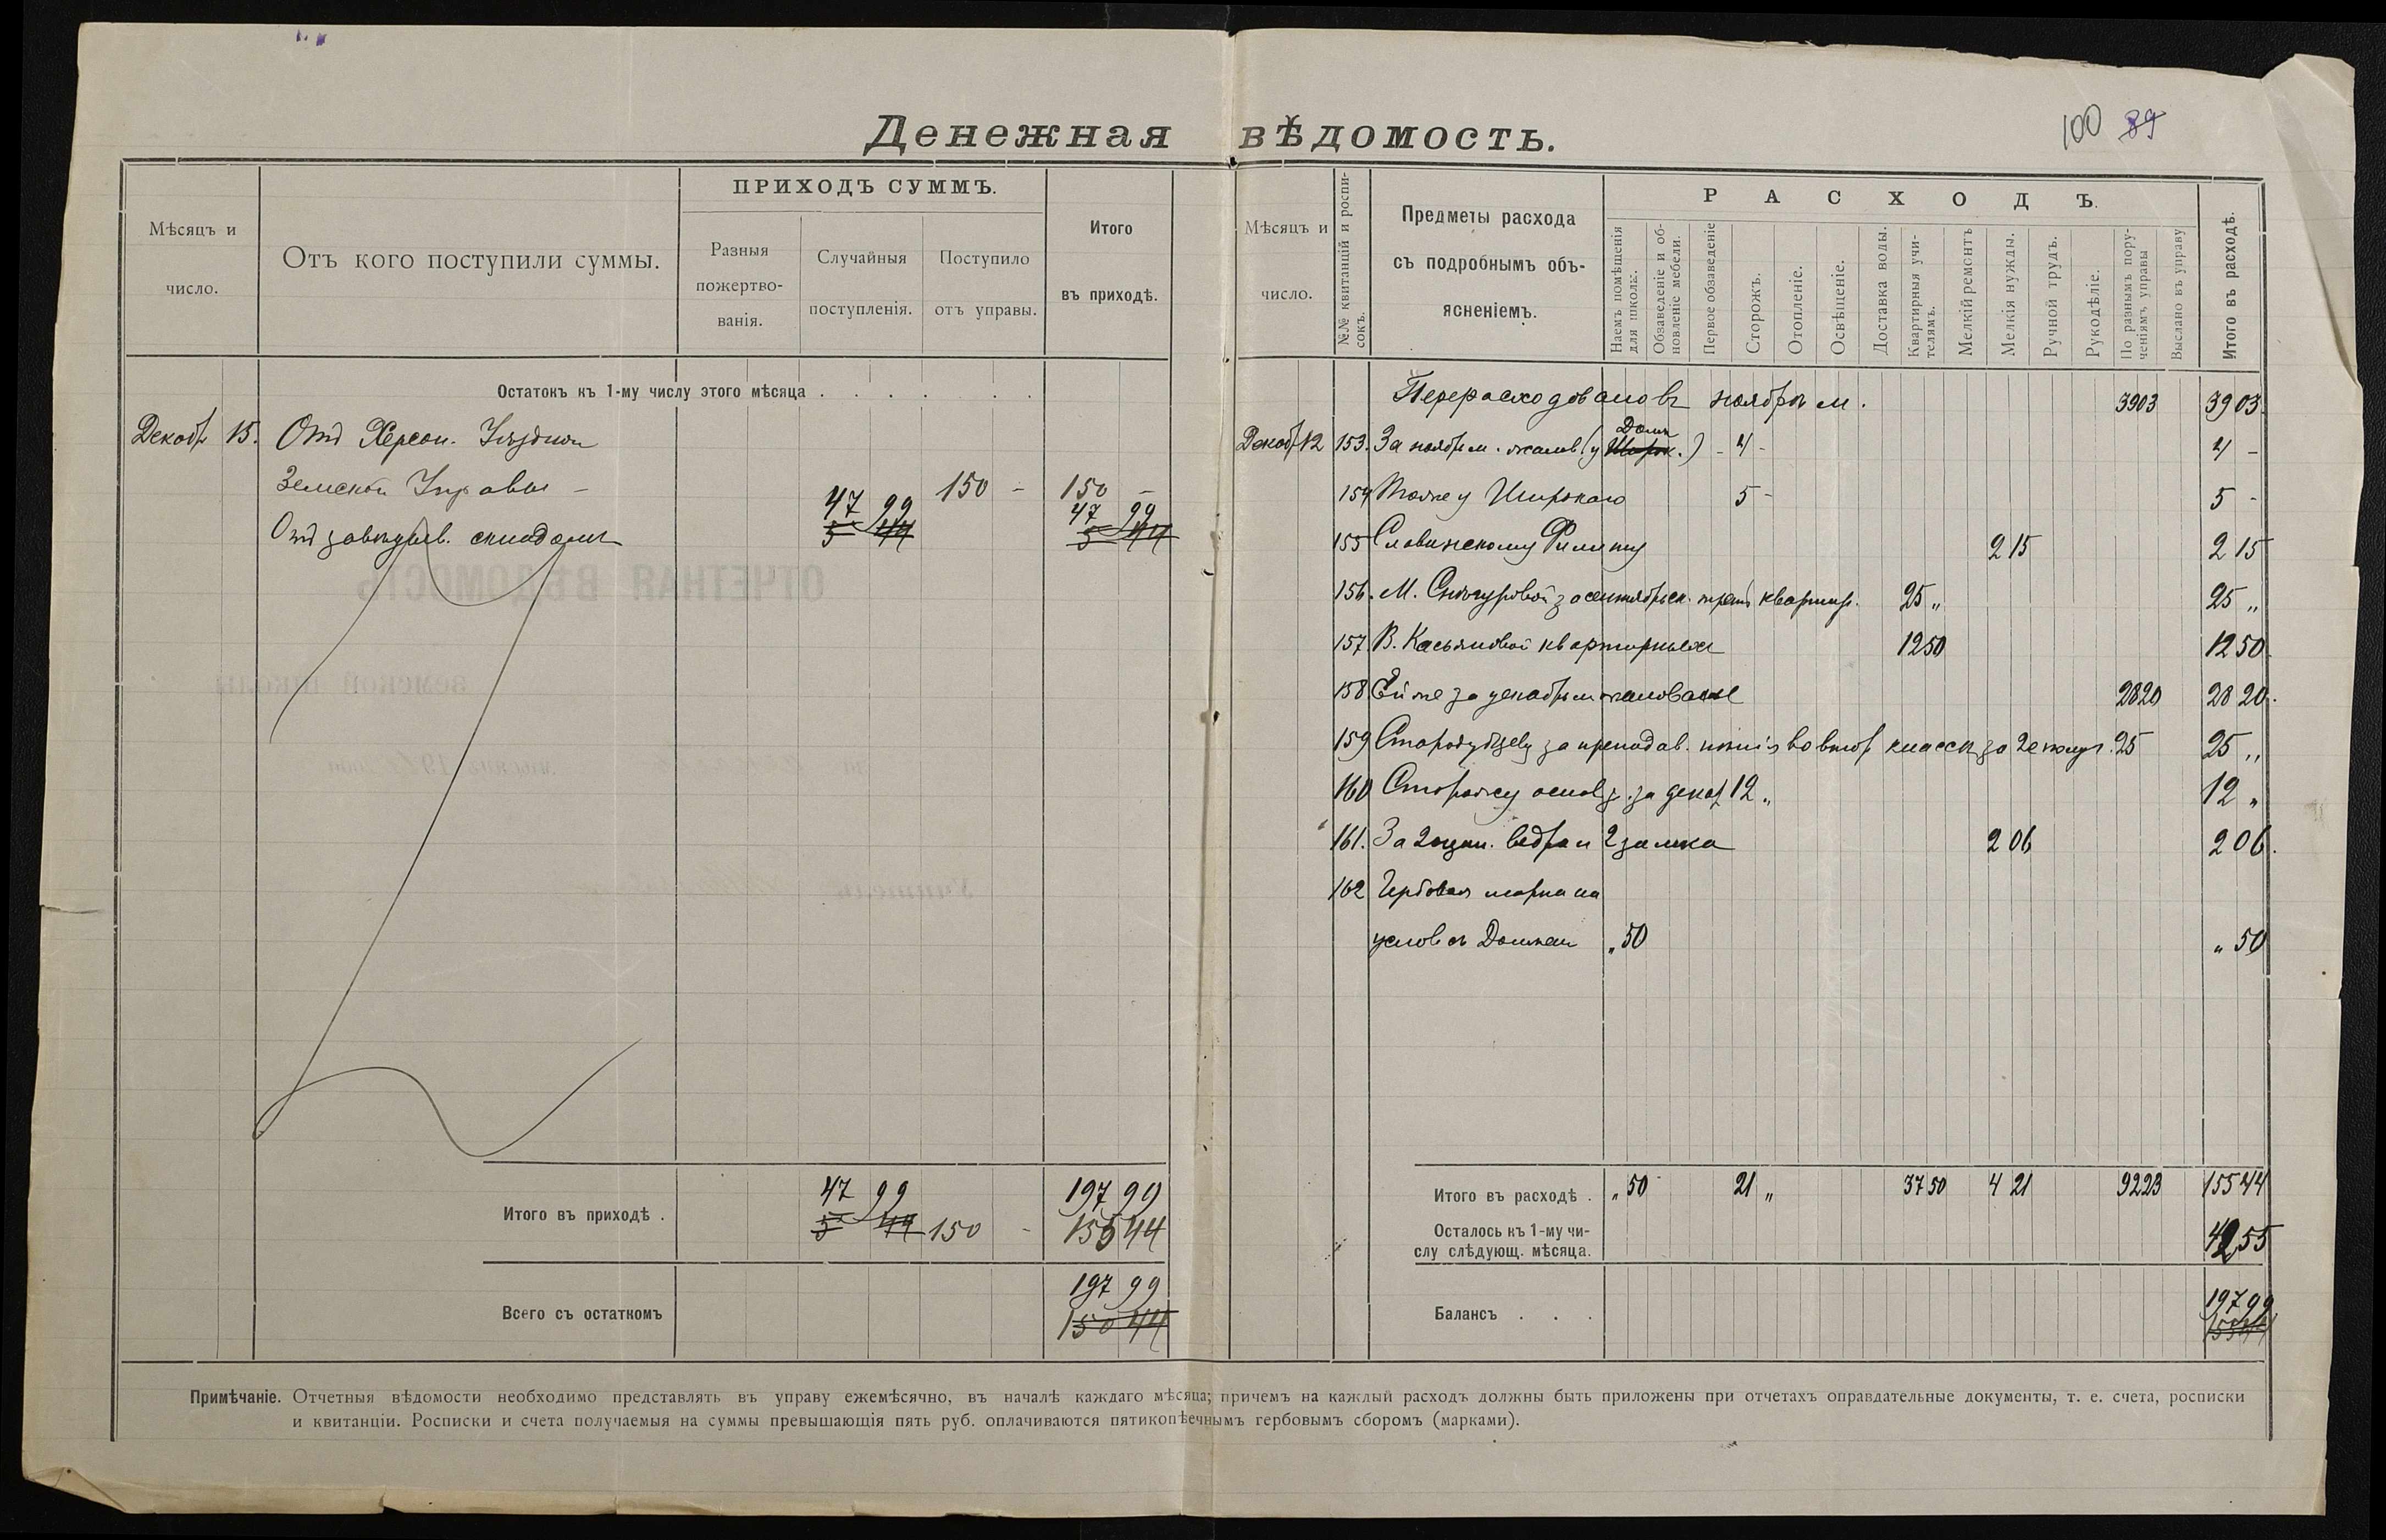 100 89
Денежная вѣдомость.
Мѣсяцъ и число.
Отъ кого поступили суммы.
ПРИХОДЪ СУММЪ.
Разныя пожертво-
ванія.
Случайныя
поступленія.
Поступило
отъ управы.
Итого
въ приходѣ.
Остатокъ къ 1-му числу этого мѣсяца . . . . . .
Декабр 15. Отъ Херсон. Уѣздной
Земской Управы – 150 - 150 -
47 99 47 99
Отъ завѣдыв. складомъ 5 44 5 44
47 99 197 99
Итого въ приходѣ . 5 44 150 - 155 44
197 99
Всего съ остаткомъ 150 44
Мѣсяцъ и
число.
№№ квитанцій и роспи-
сокъ.
Предметы расхода
съ подробнымъ объ-
ясненіемъ.
РАСХОДЪ.
Наемъ помѣщенія
для школы.
Обзаведеніе и об-
новленіе мебели.
Первое обзаведеніе
Сторожъ.
Отопленіе.
Освѣщеніе.
Доставка воды.
Квартирныя учи-
телямъ.
Мелкій ремонтъ
Мелкія нужды.
Ручной трудъ.
Рукодѣліе.
По разнымъ пору-
ченіямъ управы
Выслано въ управу
Итого въ расходѣ.
Перерасходовано въ ноябрѣ м. 3903 3903.
Декаб 12 153. За ноябрь м. жалов. (у Широк.) - 4 - 4 -
154 Тоже у Широкаго 5 - 5 -
155 Словинскому Филипу 2 15 2 15
156. М. Снѣгуровой за сентябрьск. треть квартир. 25 „ 25 „
157 В. Касьяновой квартирныхъ 12 50 12 50.
158 Ей же за декабрь м жалованье 28 20 28 20.
159 Стародубцеву за преподав. пѣнія во втор классѣ за 25 25 „
160 Сторожу за декаб 12 „ 12 „
161. За 2 ведра и 2 замка 2 06 2 06.
162 Гербовая марка на
услов съ „ 50 „ 50
Итого въ расходѣ . „ 50 21 „ 37 50 4 21 92 23 155 44
Осталось къ 1-му чи-
слу слѣдующ. мѣсяца. 42,55
197 99
Балансъ . . . 155 44
Примѣчаніе. Отчетныя вѣдомости необходимо представлять въ управу ежемѣсячно, въ началѣ каждаго мѣсяца; причемъ на каждый расходъ должны быть приложены при отчетахъ оправдательные документы, т. е. счета, росписки
и квитанціи. Росписки и счета получаемыя на суммы превышающія пять руб. оплачиваются пятикопѣечнымъ гербовымъ сборомъ (марками).